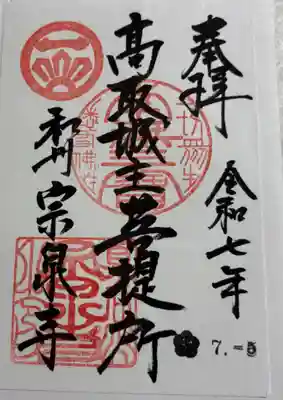 奉拝
令和七年
7.-5
高取城主菩提所
和州宗泉寺